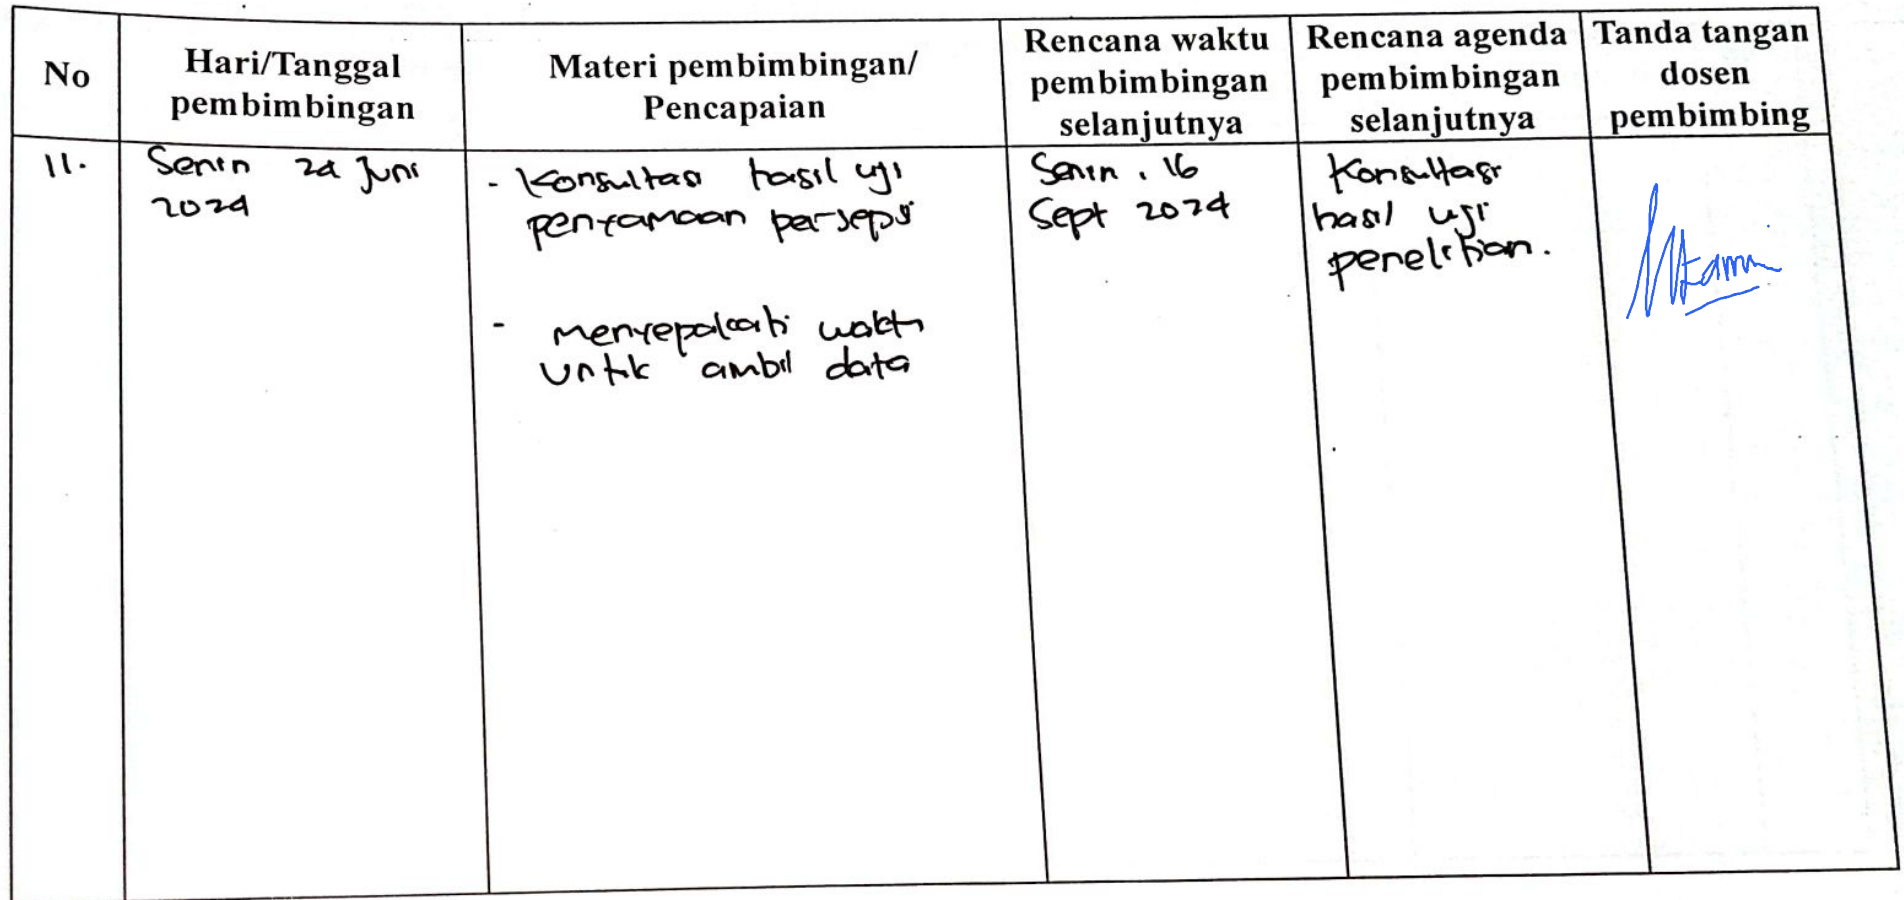 No
Hari/Tanggal
pembimbingan
Materi pembimbingan/
Pencapaian
Rencana waktu
pembimbingan
selanjutnya
Rencana agenda
pembimbingan
selanjutnya
Tanda tangan
dosen
pembimbing
11.
Senin 24 Juni
2024
- Konsultasi hasil uji
penyamaan persepsi
- menyepakati waktu
untuk ambil data
Senin, 16
Sept 2024
Konsultasi
hasil uji
penelitian.